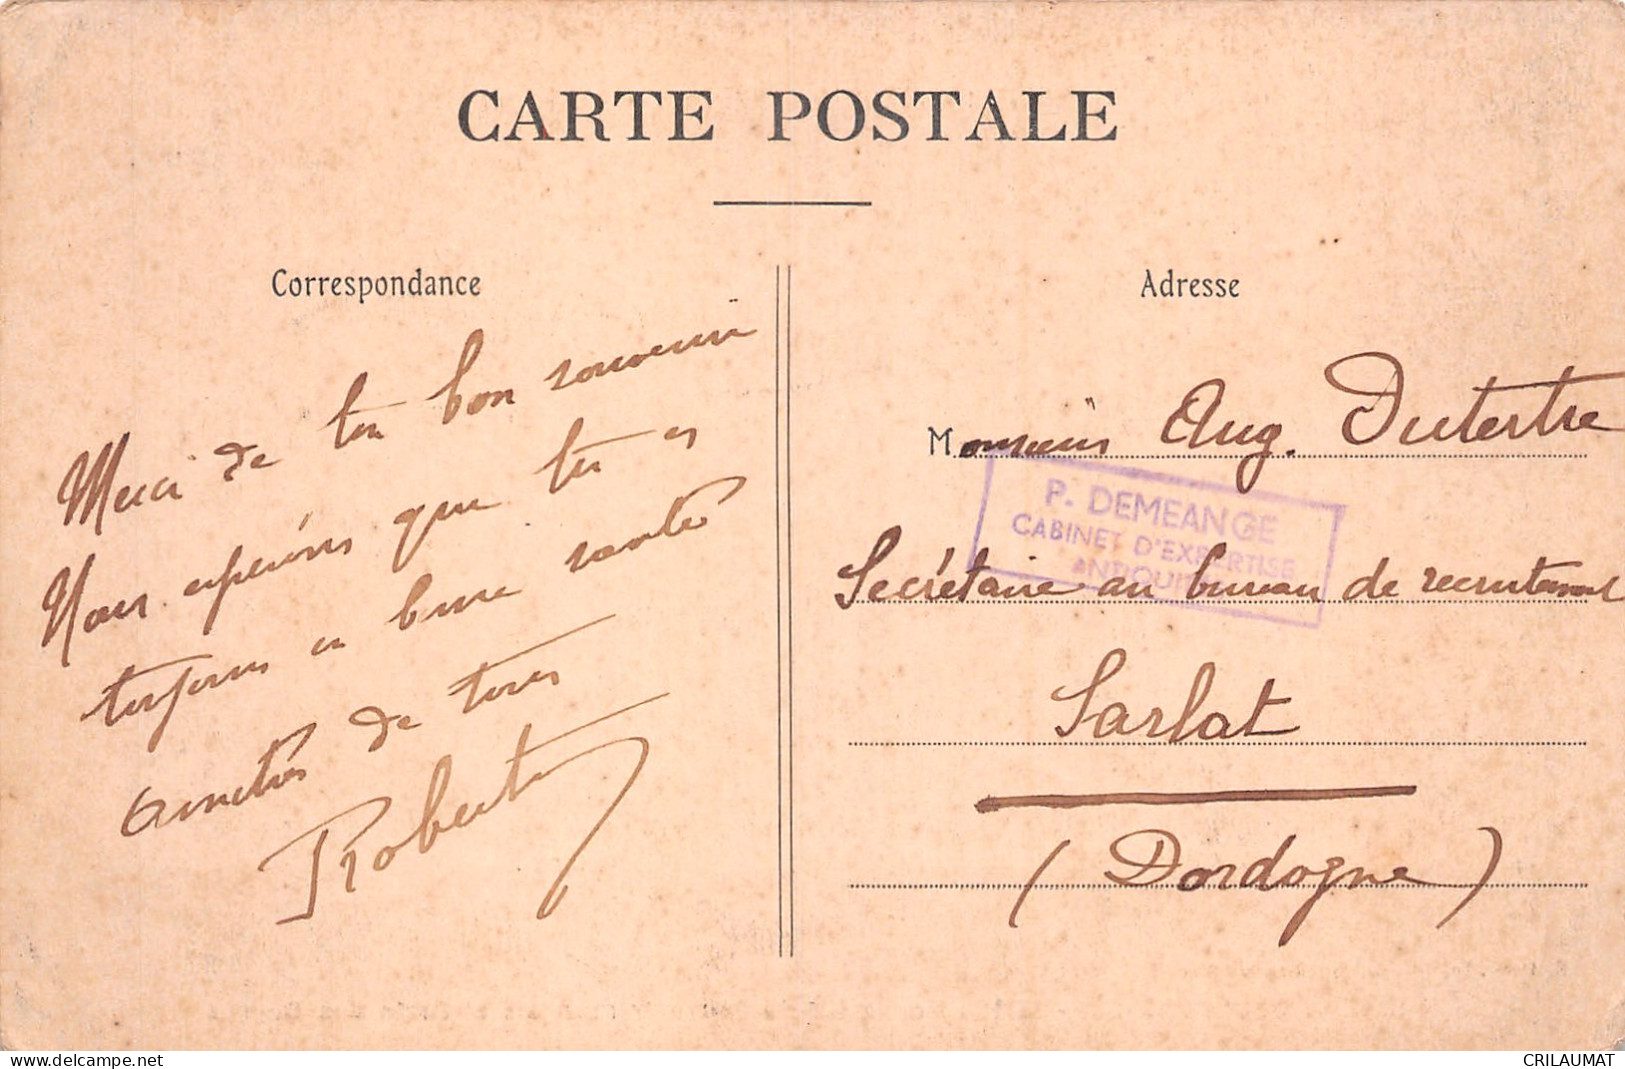 CARTE POSTALE
Correspondance
Merci de ton bon souvenir
Nous espérons que tu es
toujours en bonne santé
Amitiés de tous
Robert
Adresse
Monsieur Aug. Dutertre
P. DEMEANGE
CABINET D'EXPERTISE
Secrétaire au bureau de recrutement
Sarlat
(Dordogne)
www.delcampe.net
CRILAUMAT